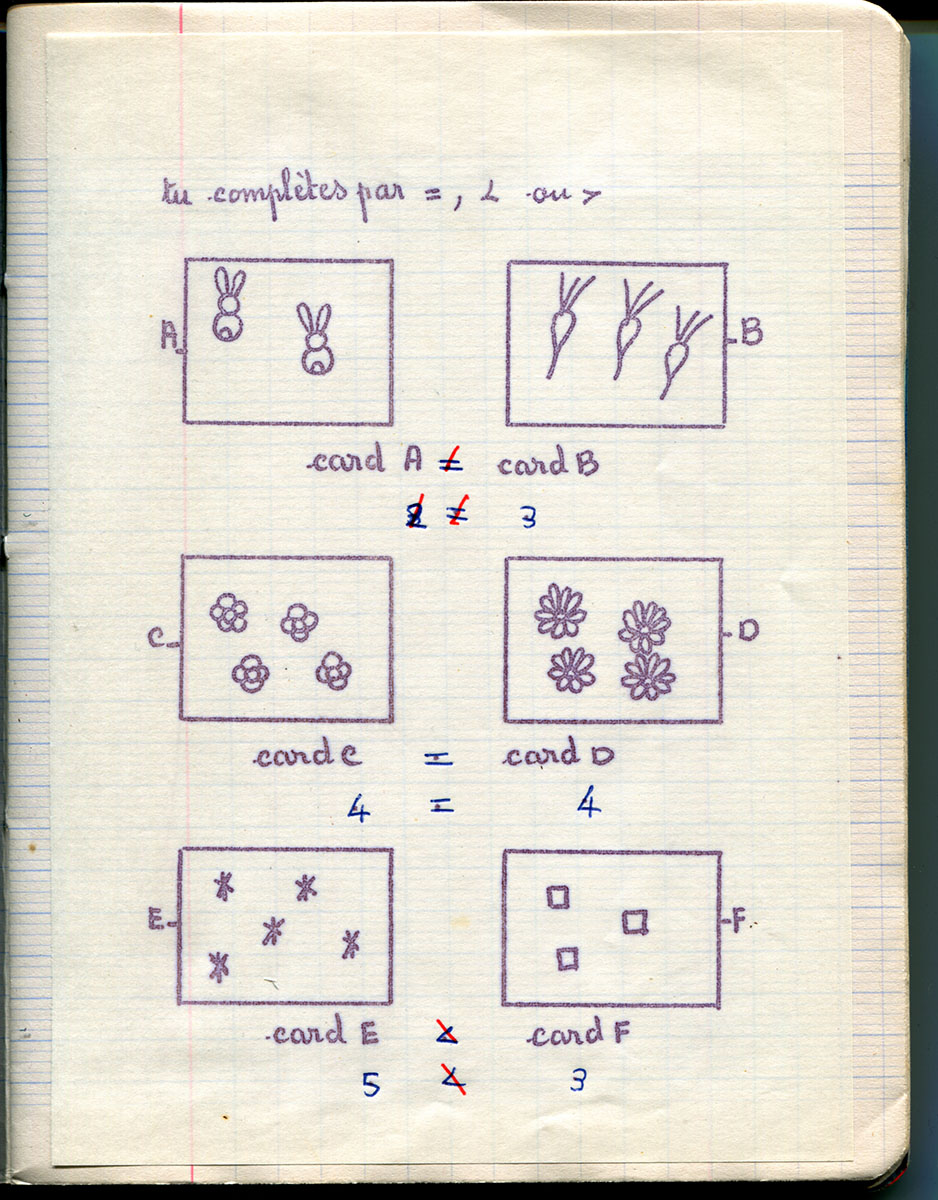 tu complètes par = , < ou >
A B
card A = card B
= 3
C D
card C = card D
4 = 4
E F
card E < card F
5 < 3